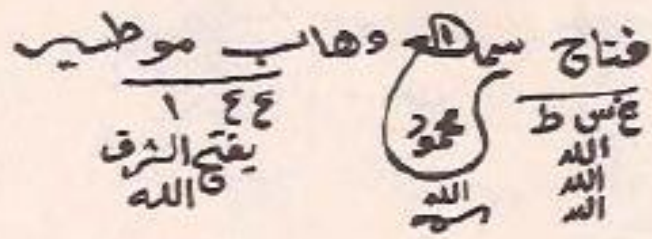 فتاح سماطع وهاب موطير
ع س ط
الله
الله
الله
محمود
الله
٤٤ ١
يفتح الشرف
الله